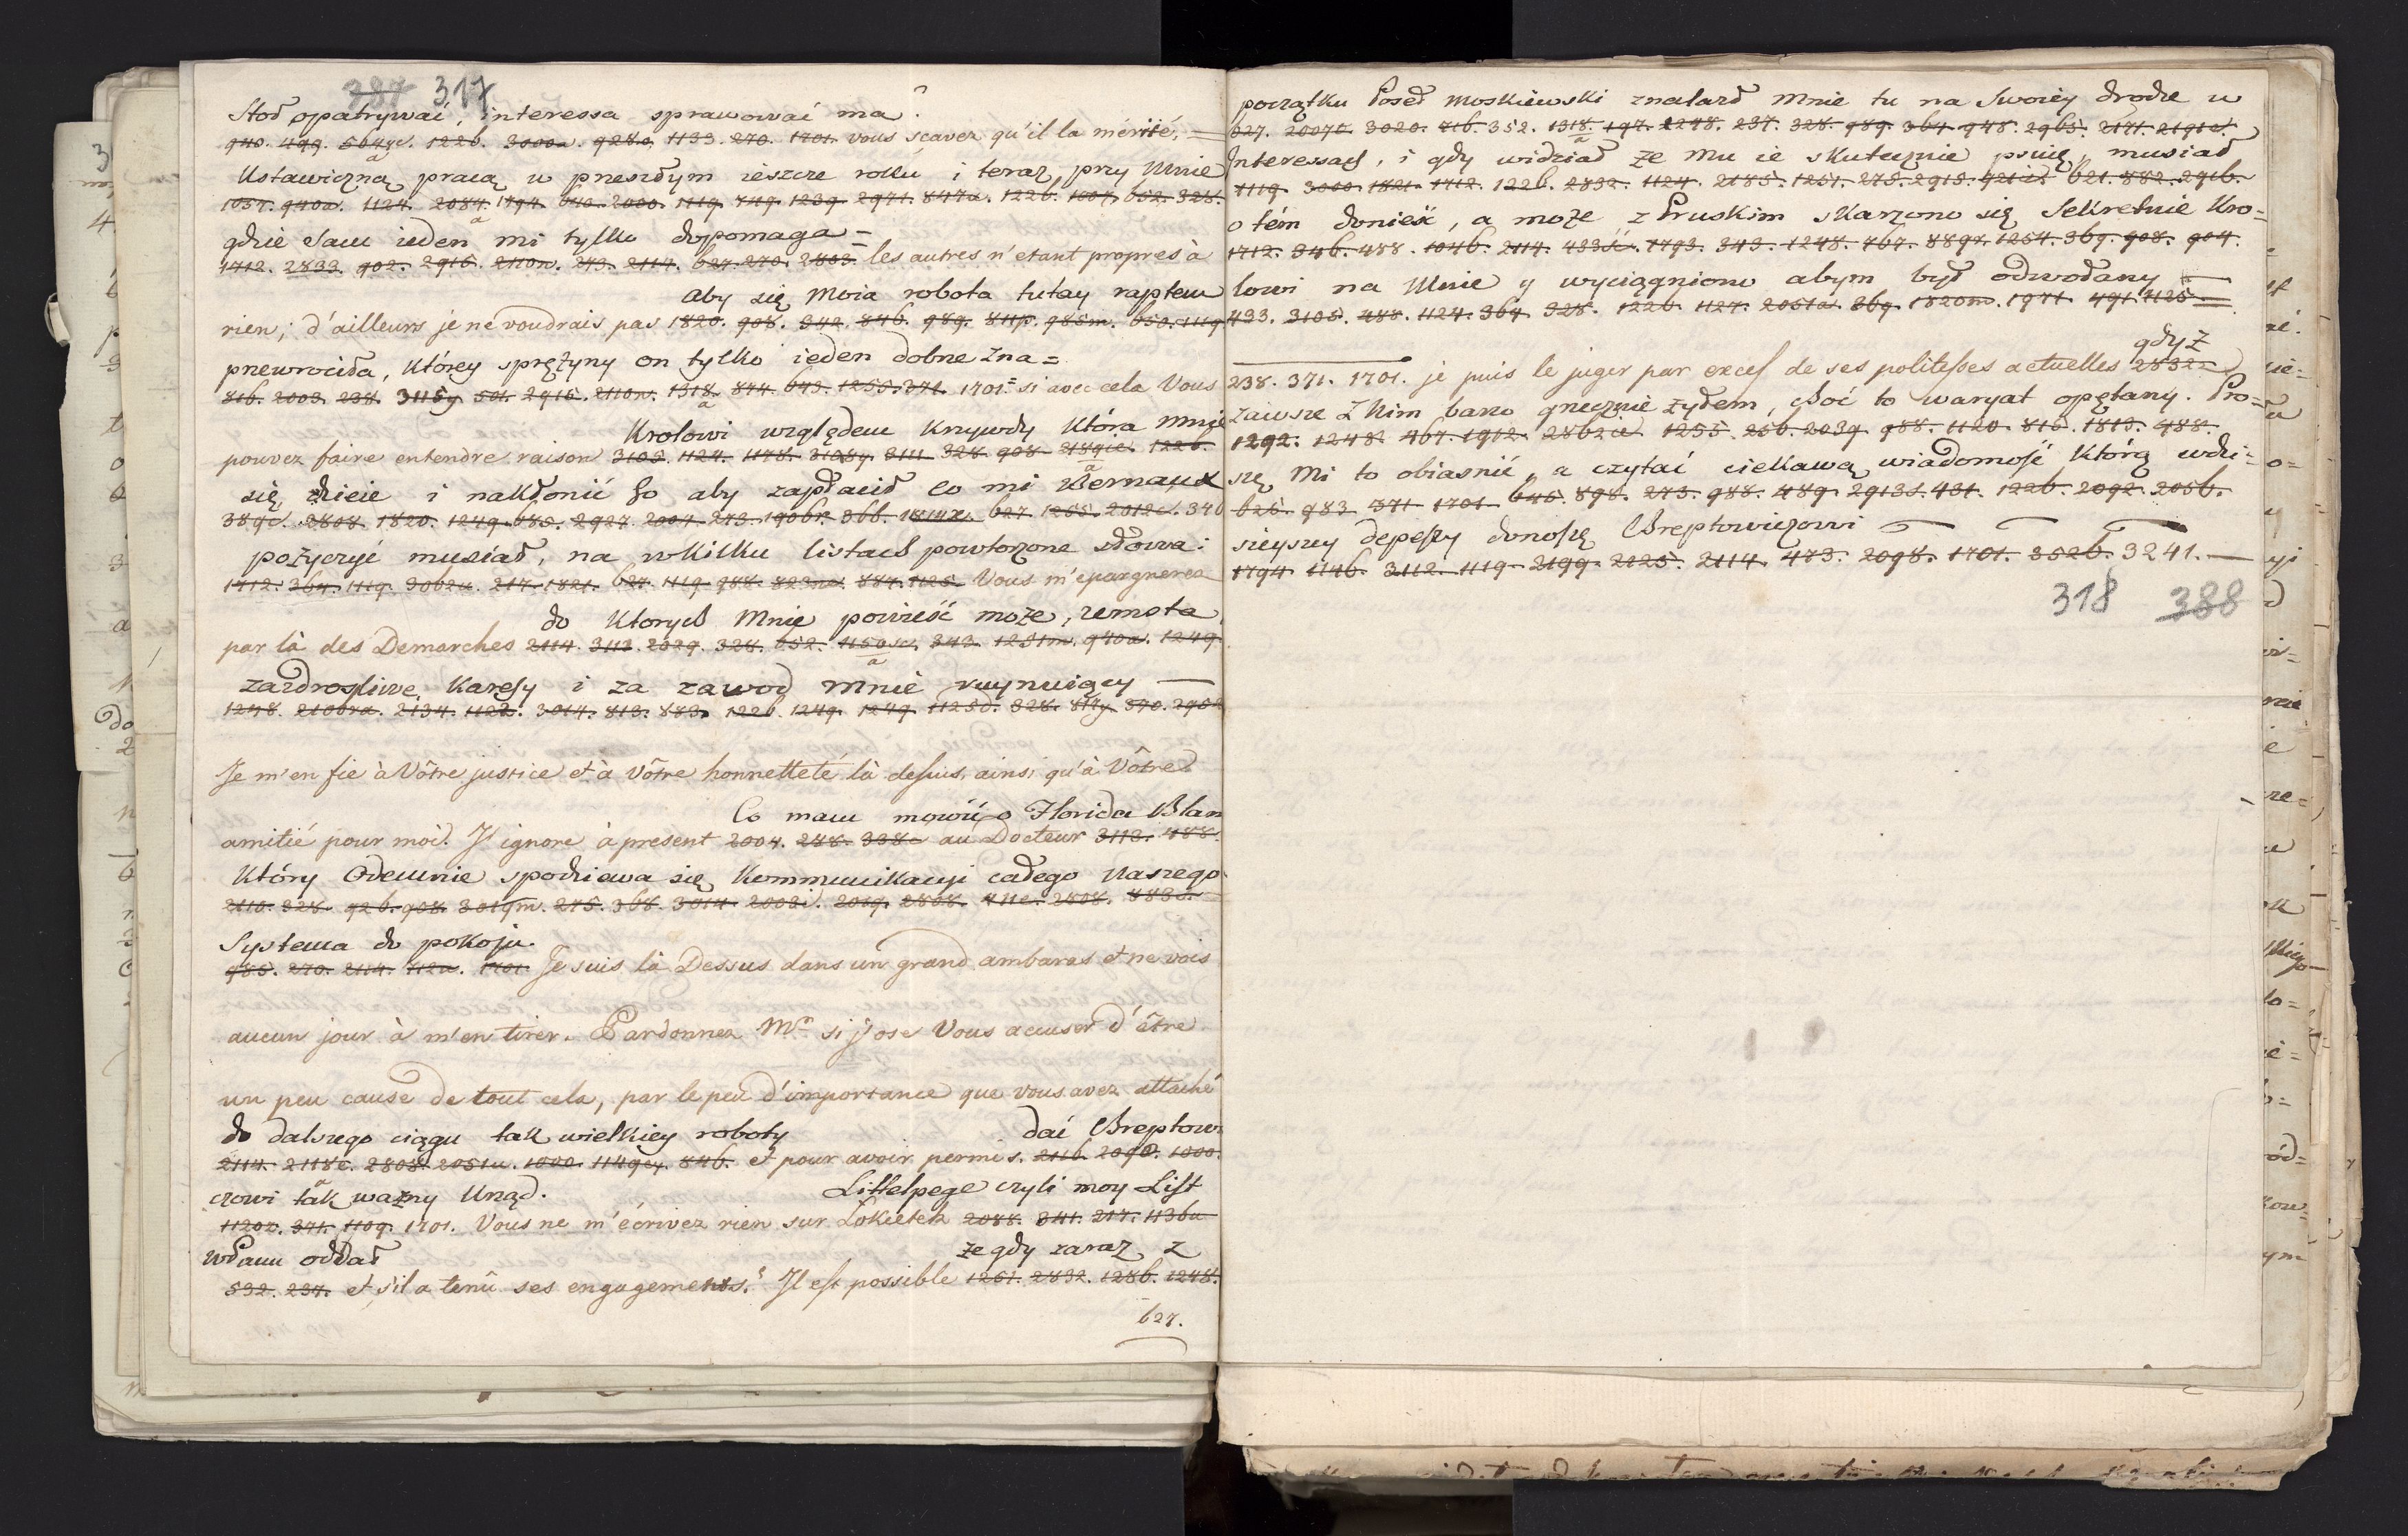 387 317
Stoł opatrywać, interessa sprawować ma?
940. 499. 564ye. 1226. 3000a. 928o. 1133. 270. 1701. Vous sçavez qu'il la mérite, =
Ustawiczną pracą w przeszłym ieszcze roku i teraz, przy Mnie
1057. 940a. 1124. 2084. 1794. 2000. 1119. 749. 1239. 2971. 847a. 1226. 1007. 652. 328.
gdzie Sam ieden mi tylko dopomaga =
1712. 2833. 902. 2916. 2110n. 273. 2114. 627. 270. 2803. les autres n'etant propres à
aby się Moia robota tutay raptem
rien; d'ailleurs je ne voudrais pas 1820. 908. 342. 846. 989. 811p. 985m. 650. 1119
przewrociła, którey sprężyny on tylko ieden dobrze zna =
816. 2003. 238. 3115y. 501. 2916. 2110n. 1318. 874. 643. 1255. 371. 1701. = si avec cela Vous
Krolowi względem krzywdy która mnie
pouvez faire entendre raison 3105. 1124. 1178. 3108y. 3111. 328. 908. 2189ie. 1226.
się dzieie i nakłonić Go aby zapłacił co mi Bernaux
389c. 2808. 1820. 1249. 785. 2927. 2004. 273. 1906r. 366. 1814x. 627. 1265. 2012c. 346
pożyczyć musiał, na wkilku listach powtorzone słowa:
1712. 364. 1119. 3062u. 217. 1821. 627. 1119. 988. 887. 1125. Vous m'epargnerez
do Ktorych Mnie powieść może, zemsta
par là des Demarches 2114. 3113. 2029. 328. 652. 343. 1251m. 970a. 1249.
zazdrosliwe, Karesy i za zawod mnie ruynuiący —
1248. 2106ra. 2134. 1122. 3014. 813. 883. 1226. 1249. 1249. 1125d. 328. 817y. 570. 2902
Je m'en fie à Vôtre justice et à Vôtre honnetteté là dessus, ainsi qu'à Vôtre
Co mam mowić o Florida Blan
amitié pour moi. J'ignore à present 2004. 288. 338c au Docteur 3113. 488.
Który Odemnie spodziewa się Kommunikacyi całego Naszego
2110. 328. 926. 908. 3019m. 275. 368. 3014. 2003i. 2019. 2868. 411c. 2808. 483c.
Systema do pokoju.
985. 270. 2114. 712u. 1701. Je suis là Dessus dans un grand ambaras et ne vois
aucun jour à m'en tirer. Pardonnez Mr si j'ose Vous accuser d'être
un peu cause de tout cela, par le peu d'importance que vous avez attaché
do dalszego ciągu tak wielkiey roboty dać Chreptow
2114. 2118c. 2808. 2051u. 1000. 1149cy. 846. et pour avoir permis. 2116. 2098. 1000.
czowi tak ważny Urząd. Littelpege czyli moy List
1120z. 371. 1109. 1701. Vous ne m'écrivez rien sur Lokietek 2088. 341. 217. 1136u
WPanu oddał że gdy zaraz z
532. 237. et s'il a tenû ses engagemens? Il est possible 1261. 2832. 1286. 1248.
627.
początku Poseł Moskiewski znalazł Mnie tu na Swoiey drodze w
627. 2007c. 3020. 716. 352. 1318. 197. 2248. 237. 328. 989. 364. 948. 2965. 2171. 2191c.
Interessach, i gdy widział że Mu ie skutecznie psuię, musiał
1119. 3000. 1821. 1712. 1226. 2832. 1124. 2185. 1261. 275. 2915. 621. 882. 2916.
o tém donieść, a może z Pruskim skarzono się Sekretnie Kro=
1712. 346. 488. 1046. 2114. 433. 1793. 343. 1248. 767. 889r. 1254. 369. 908. 904.
lowi na Mnie y wyciągniono abym był odwołany —
433. 3105. 488. 1124. 364. 328. 1226. 1127. 2051a. 869. 1820m. 1971. 491. 1125.
gdyż
238. 371. 1701. je puis le juger par exces de ses politesses actuelles 2832=
zawsze z Nim barzo grzecznie żyłem, choć to waryat opętany. Pro=
1292. 1248. 467. 1912. 2862ie. 1255. 256. 2039. 988. 1120. 815. 1813. 488.
szę Mi to obiasnić, a czytać ciekawą wiadomość którą wdzi=
625. 983. 371. 1701. 645. 898. 273. 988. 489. 2913s. 431. 1226. 2092. 2056.
sieyszey depeszy donoszę Chreptowiczowi
1794. 1146. 3112. 1119. 2199. 2125. 2114. 473. 2098. 1701. 3526. 3241. —
318 388